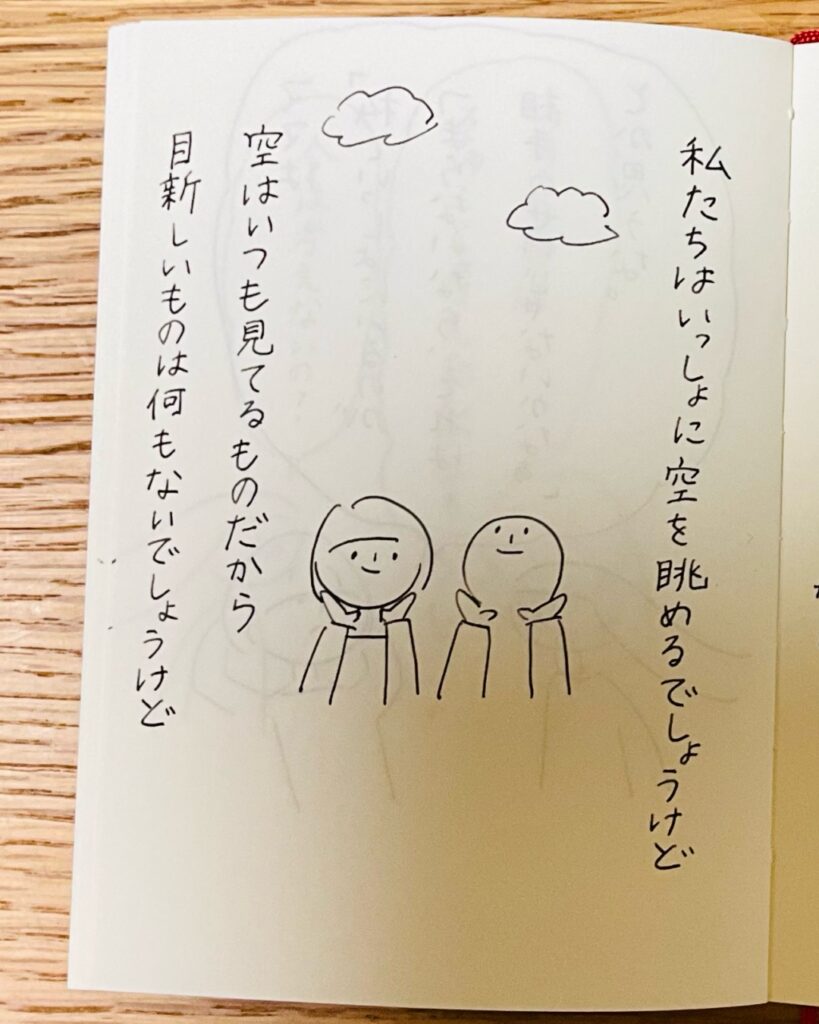 私たちはいっしょに空を眺めるでしょうけど
空はいつも見てるものだから
目新しいものは何もないでしょうけど